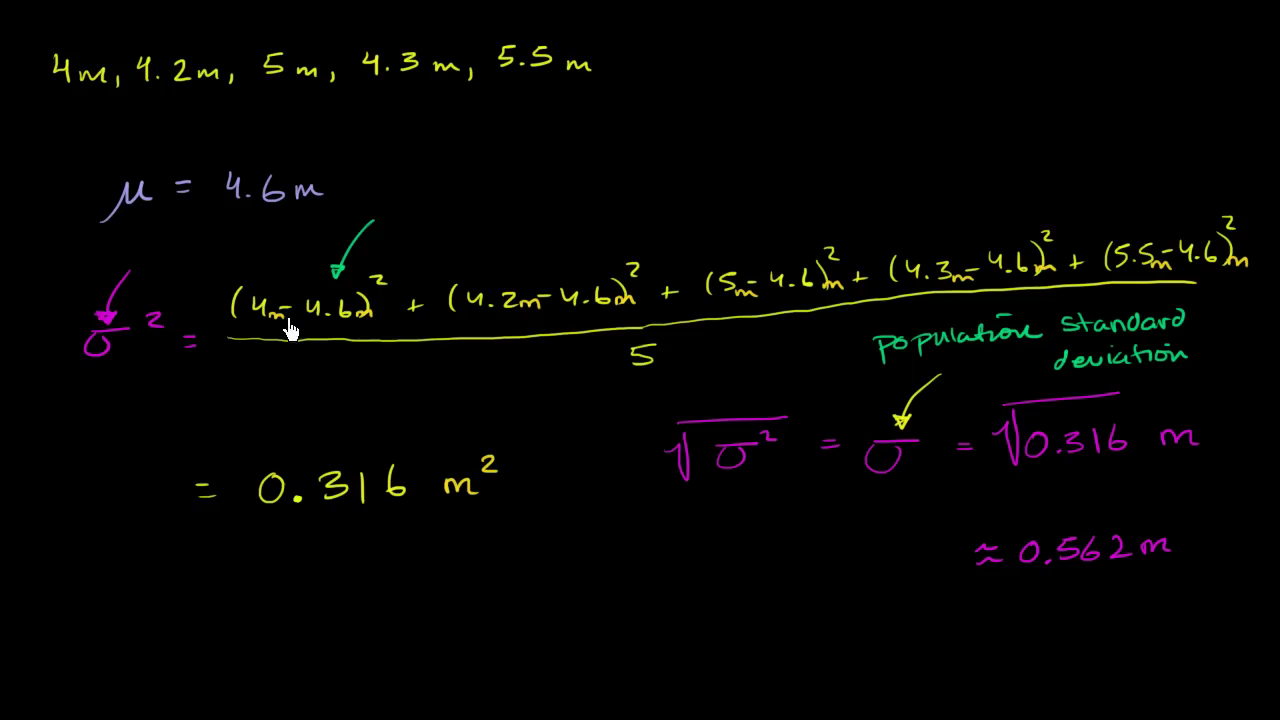 4m, 4.2m, 5m, 4.3m, 5.5m
μ = 4.6m
σ² = (4m-4.6m)² + (4.2m-4.6m)² + (5m-4.6m)² + (4.3m-4.6m)² + (5.5m-4.6m)²
5
population standard
deviation
√σ² = σ = √0.316 m
= 0.316 m²
≈ 0.562m